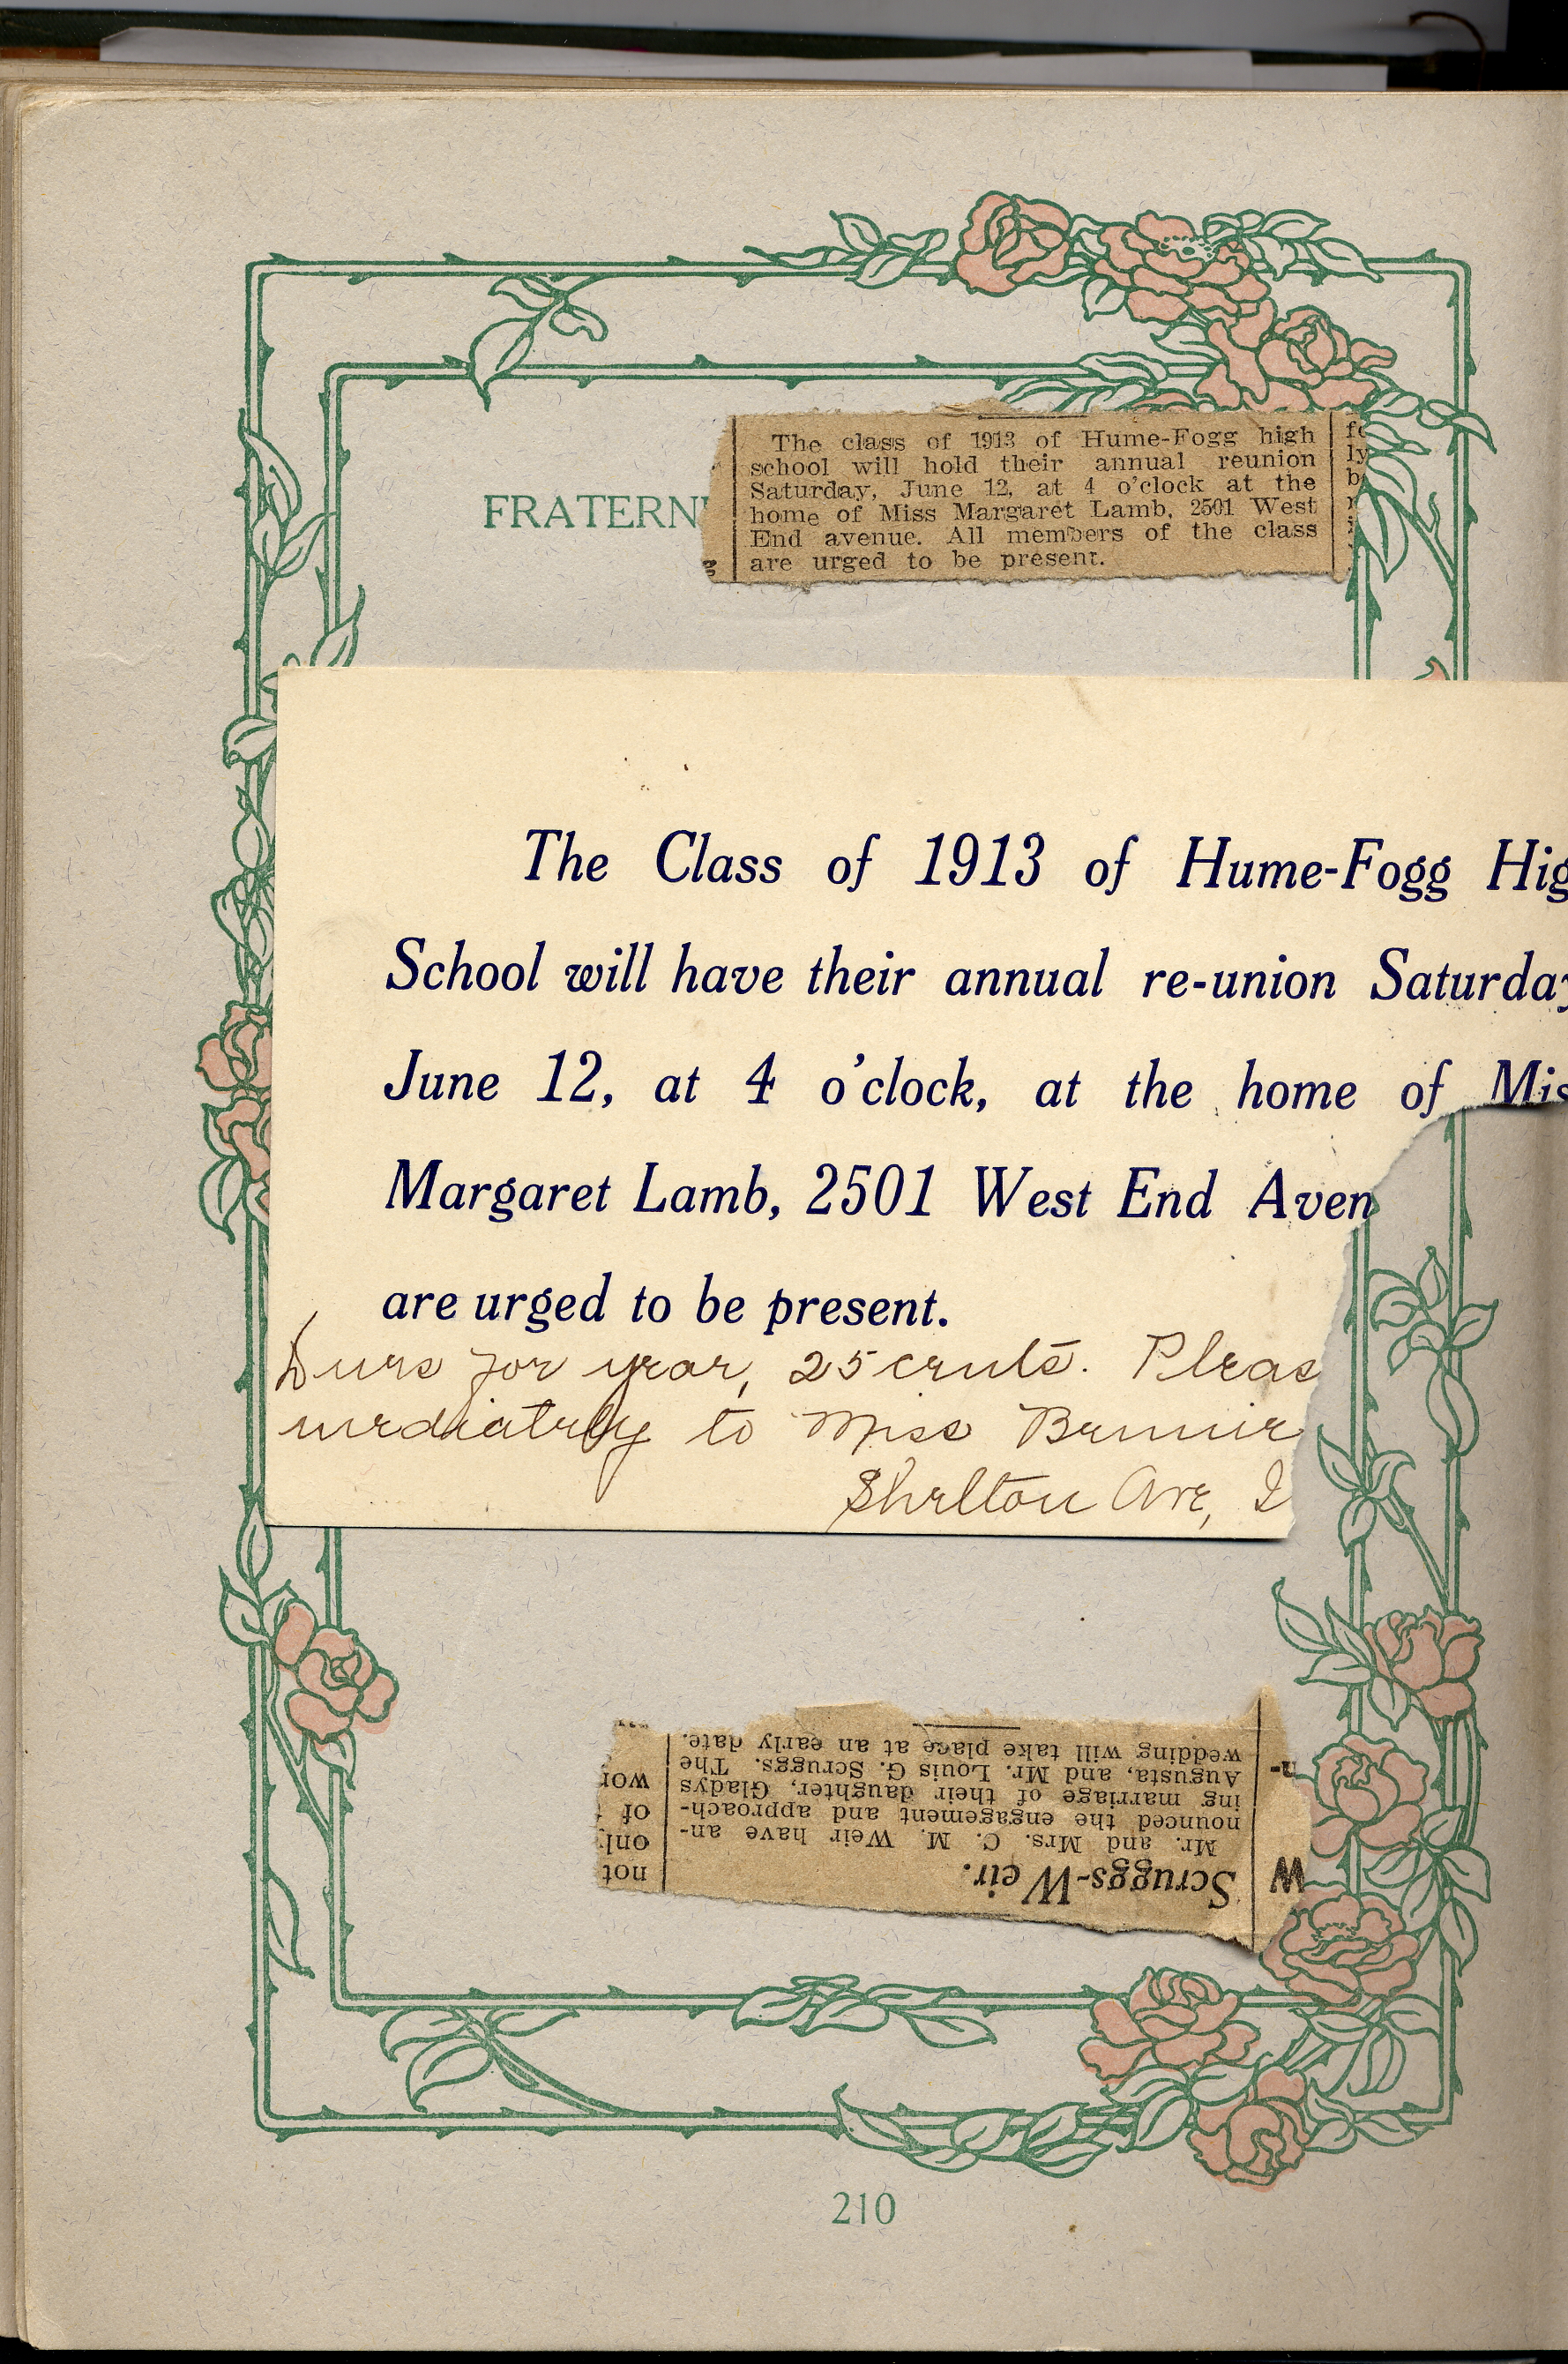 FRATERN
The class of 1913 of Hume-Fogg high
school will hold their annual reunion
Saturday, June 12, at 4 o'clock at the
home of Miss Margaret Lamb, 2501 West
End avenue. All members of the class
are urged to be present.
The Class of 1913 of Hume-Fogg Hig
School will have their annual re-union Saturday
June 12, at 4 o'clock, at the home of Mis
Margaret Lamb, 2501 West End Aven
are urged to be present.
Dues for year, 25 cents. Pleas
mediately to Miss Bennie
Shelton Ave,
Scruggs-Weir.
Mr. and Mrs. C. M. Weir have an-
nounced the engagement and approach-
ing marriage of their daughter, Gladys
Augusta, and Mr. Louis G. Scruggs. The
wedding will take place at an early date.
W
n-
not
onl
of
wor
210